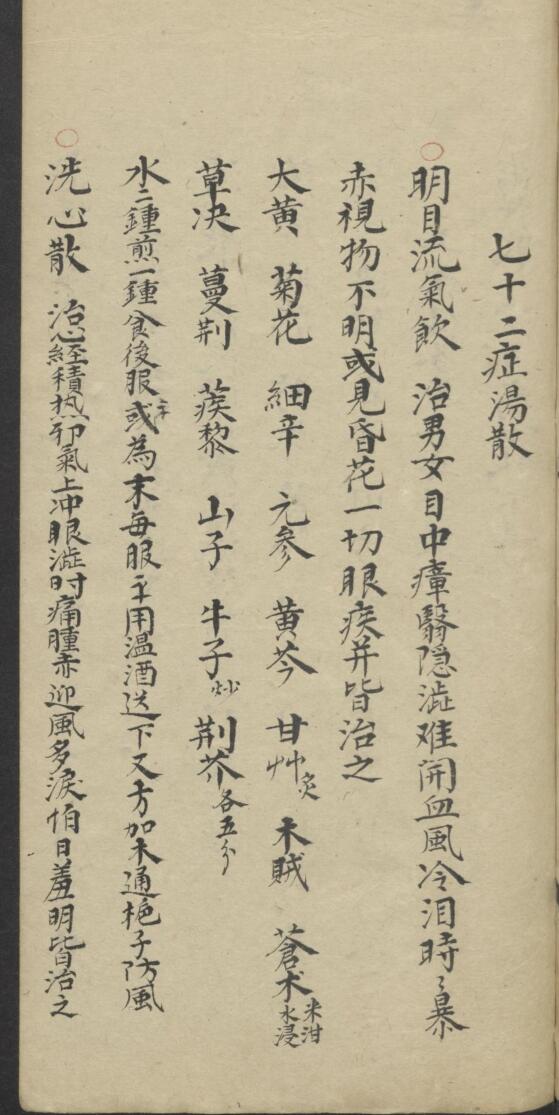 七十二症湯散
明目流氣飲 治男女目中瘴翳隐澁难開血風冷泪時〻暴
赤視物不明或見昏花一切眼疾并皆治之
大黄 菊花 細辛 元參 黄芩 甘艸炙 木賊 蒼术米泔水浸
草决 蔓荆 蒺藜 山子 牛子炒 荆芥各五分
水二鍾煎一鍾食後服或為末每服 用温酒送下又方加木通栀子防風
洗心散 治心經積热邪氣上冲眼澁时痛腫赤迎風多淚怕日羞明皆治之